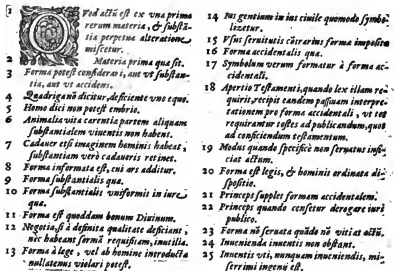 1 QVod actũ est ex vna prima
rerum materia, & substã-
tia perpetua alteratione
miscetur.
2 Materia prima qua sit.
3 Forma potest considerari, aut vt substan-
tia, aut vt accidens.
4 Quadriga nõ dicitur, deficiente vno equo.
5 Homo dici non potest embrio.
6 Animalia vita carentia partem aliquam
substantialem viuentis non habent.
7 Cadauer etsi imaginem hominis habeat,
substantiam verò cadaueris retinet.
8 Forma informata est, cui ars additur.
9 Forma substantialis qua.
10 Forma substantialis vniformis in iure
qua.
11 Forma est quoddam bonum Diuinum.
12 Negotia, si à definita qualitate deficiant,
nec habeant formã requisitam, inutilia.
13 Forma à lege, vel ab homine introducta
nullatenus violari potest.
14 Ius gentium in ius ciuile quomodo symbo-
lizetur.
15 Vsus seruitutis cõtrarius forma imposita
16 Forma accidentalis qua.
17 Symbolum verum formatur à forma ac-
cidentali.
18 Apertio Testamenti, quando lex illam re-
quirit, recipit eandem passiuam interpre-
tationem pro forma accidentali, vt tot
requirantur testes ad publicandum, quot
ad conficiendum testamentum.
19 Modus quando specificè non seruatus infi-
ciat actum.
20 Forma est legis, & hominis ordinata di-
spositio.
21 Princeps supplet formam accidentalem.
22 Princeps quando censetur derogare iuri
publico.
23 Forma nõ seruata quãdo nõ vitiat actũ.
24 Inuenienda inuentis non obstant.
25 Inuentis vti, nunquam inueniendis, mi-
serrimi ingenij est.